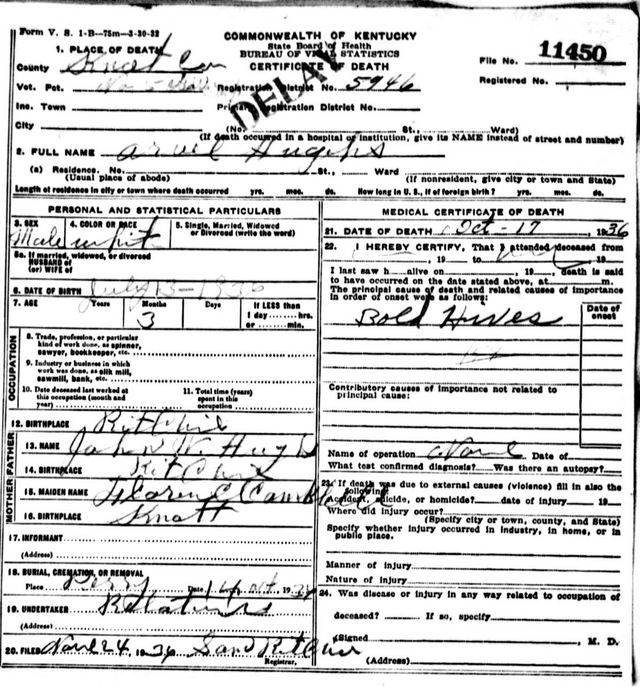 Form V. S. 1-B—75m—3-30-32
COMMONWEALTH OF KENTUCKY
State Board of Health
BUREAU OF VITAL STATISTICS
CERTIFICATE OF DEATH
DELAY
File No. 11450
Registered No.
1. PLACE OF DEATH
County Knott Co
Vot. Pct. Registration District No. 5946
Inc. Town Primary Registration District No.
City (No. St., Ward)
(If death occurred in a hospital or institution, give its NAME instead of street and number)
2. FULL NAME Arvel Hughs
(a) Residence. No. St., Ward
(Usual place of abode) (If nonresident, give city or town and State)
Length of residence in city or town where death occurred yrs. mos. ds. How long in U. S., if of foreign birth? yrs. mos. ds.
PERSONAL AND STATISTICAL PARTICULARS
3. SEX 4. COLOR OR RACE 5. Single, Married, Widowed
or Divorced (write the word)
Male whit
5a. If married, widowed, or divorced
HUSBAND of
(or) WIFE of
6. DATE OF BIRTH July 13-1936
7. AGE Years Months Days If LESS than
3 1 day hrs.
or min.
OCCUPATION
8. Trade, profession, or particular
kind of work done, as spinner,
sawyer, bookkeeper, etc.
9. Industry or business in which
work was done, as silk mill,
sawmill, bank, etc.
10. Date deceased last worked at
this occupation (month and
year)
11. Total time (years)
spent in this
occupation
12. BIRTHPLACE Ritchie
FATHER
13. NAME John W. Hughs
14. BIRTHPLACE Ritchie
MOTHER
15. MAIDEN NAME Florence Cambell
16. BIRTHPLACE Knott
17. INFORMANT
(Address)
18. BURIAL, CREMATION, OR REMOVAL
Place Perry Date Oct 19
19. UNDERTAKER Relatives
(Address)
20. FILED 24 1936 Sam Ritchie
Registrar.
MEDICAL CERTIFICATE OF DEATH
21. DATE OF DEATH Oct-17, 1936
22. I HEREBY CERTIFY, That I attended deceased from
, 19 to , 19
I last saw h alive on , 19 , death is said
to have occurred on the date stated above, at m.
The principal cause of death and related causes of importance
in order of onset were as follows:
Date of
onset
Bold Hives
Contributory causes of importance not related to
principal cause:
Name of operation None Date of
What test confirmed diagnosis? Was there an autopsy?
23. If death was due to external causes (violence) fill in also the
following:
Accident, suicide, or homicide? date of injury 19
Where did injury occur?
(Specify city or town, county, and State)
Specify whether injury occurred in industry, in home, or in
public place.
Manner of injury
Nature of injury
24. Was disease or injury in any way related to occupation of
deceased? If so, specify
(Signed , M. D.
(Address)